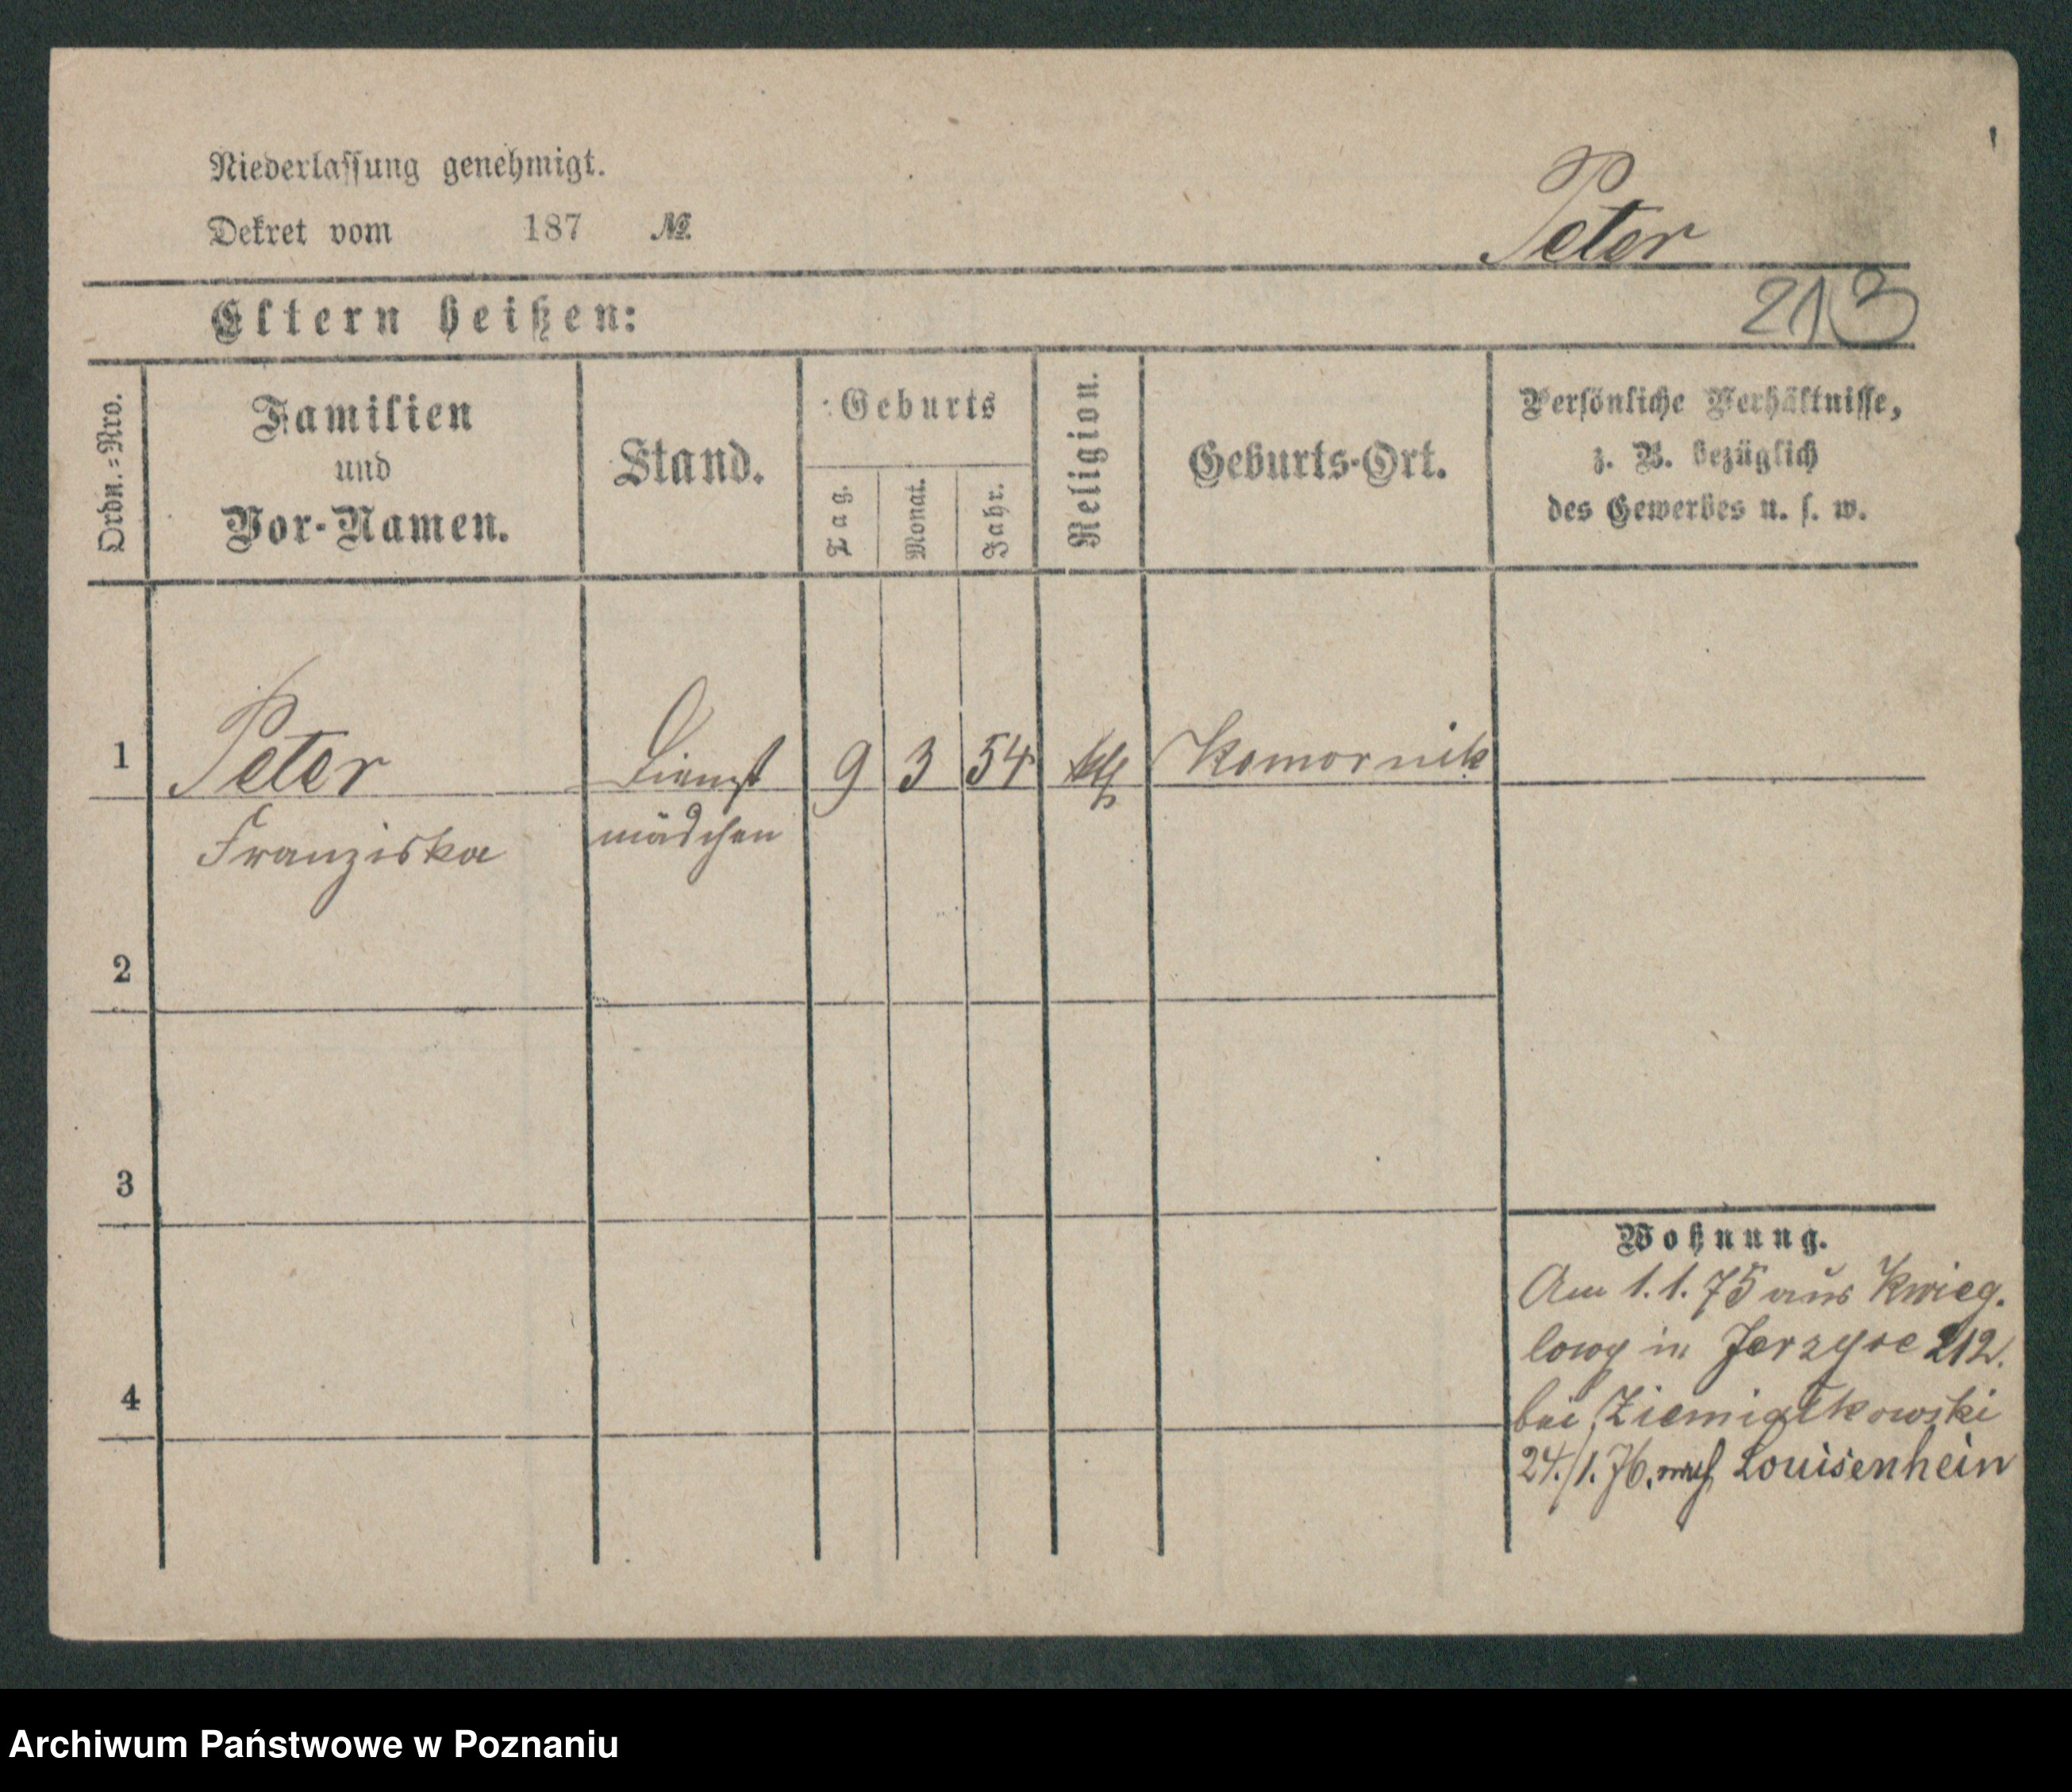 Niederlassung genehmigt.
Dekret vom 187 №
Peter
Eltern heißen:
213
Ordn.=Nro.
Familien
und
Vor-Namen.
Stand.
Geburts
Tag.
Monat.
Jahr.
Religion.
Geburts-Ort.
Persönliche Verhältnisse,
z. B. bezüglich
des Gewerbes u. s. w.
1 Peter Dienst 9 3 54 kth Komornik
Franziska mädchen
2
3
Wohnung.
Am 1.1.75 aus
in 212.
4
bei Ziemiatkowski
24./1.76. nach Louisenhein
Archiwum Państwowe w Poznaniu